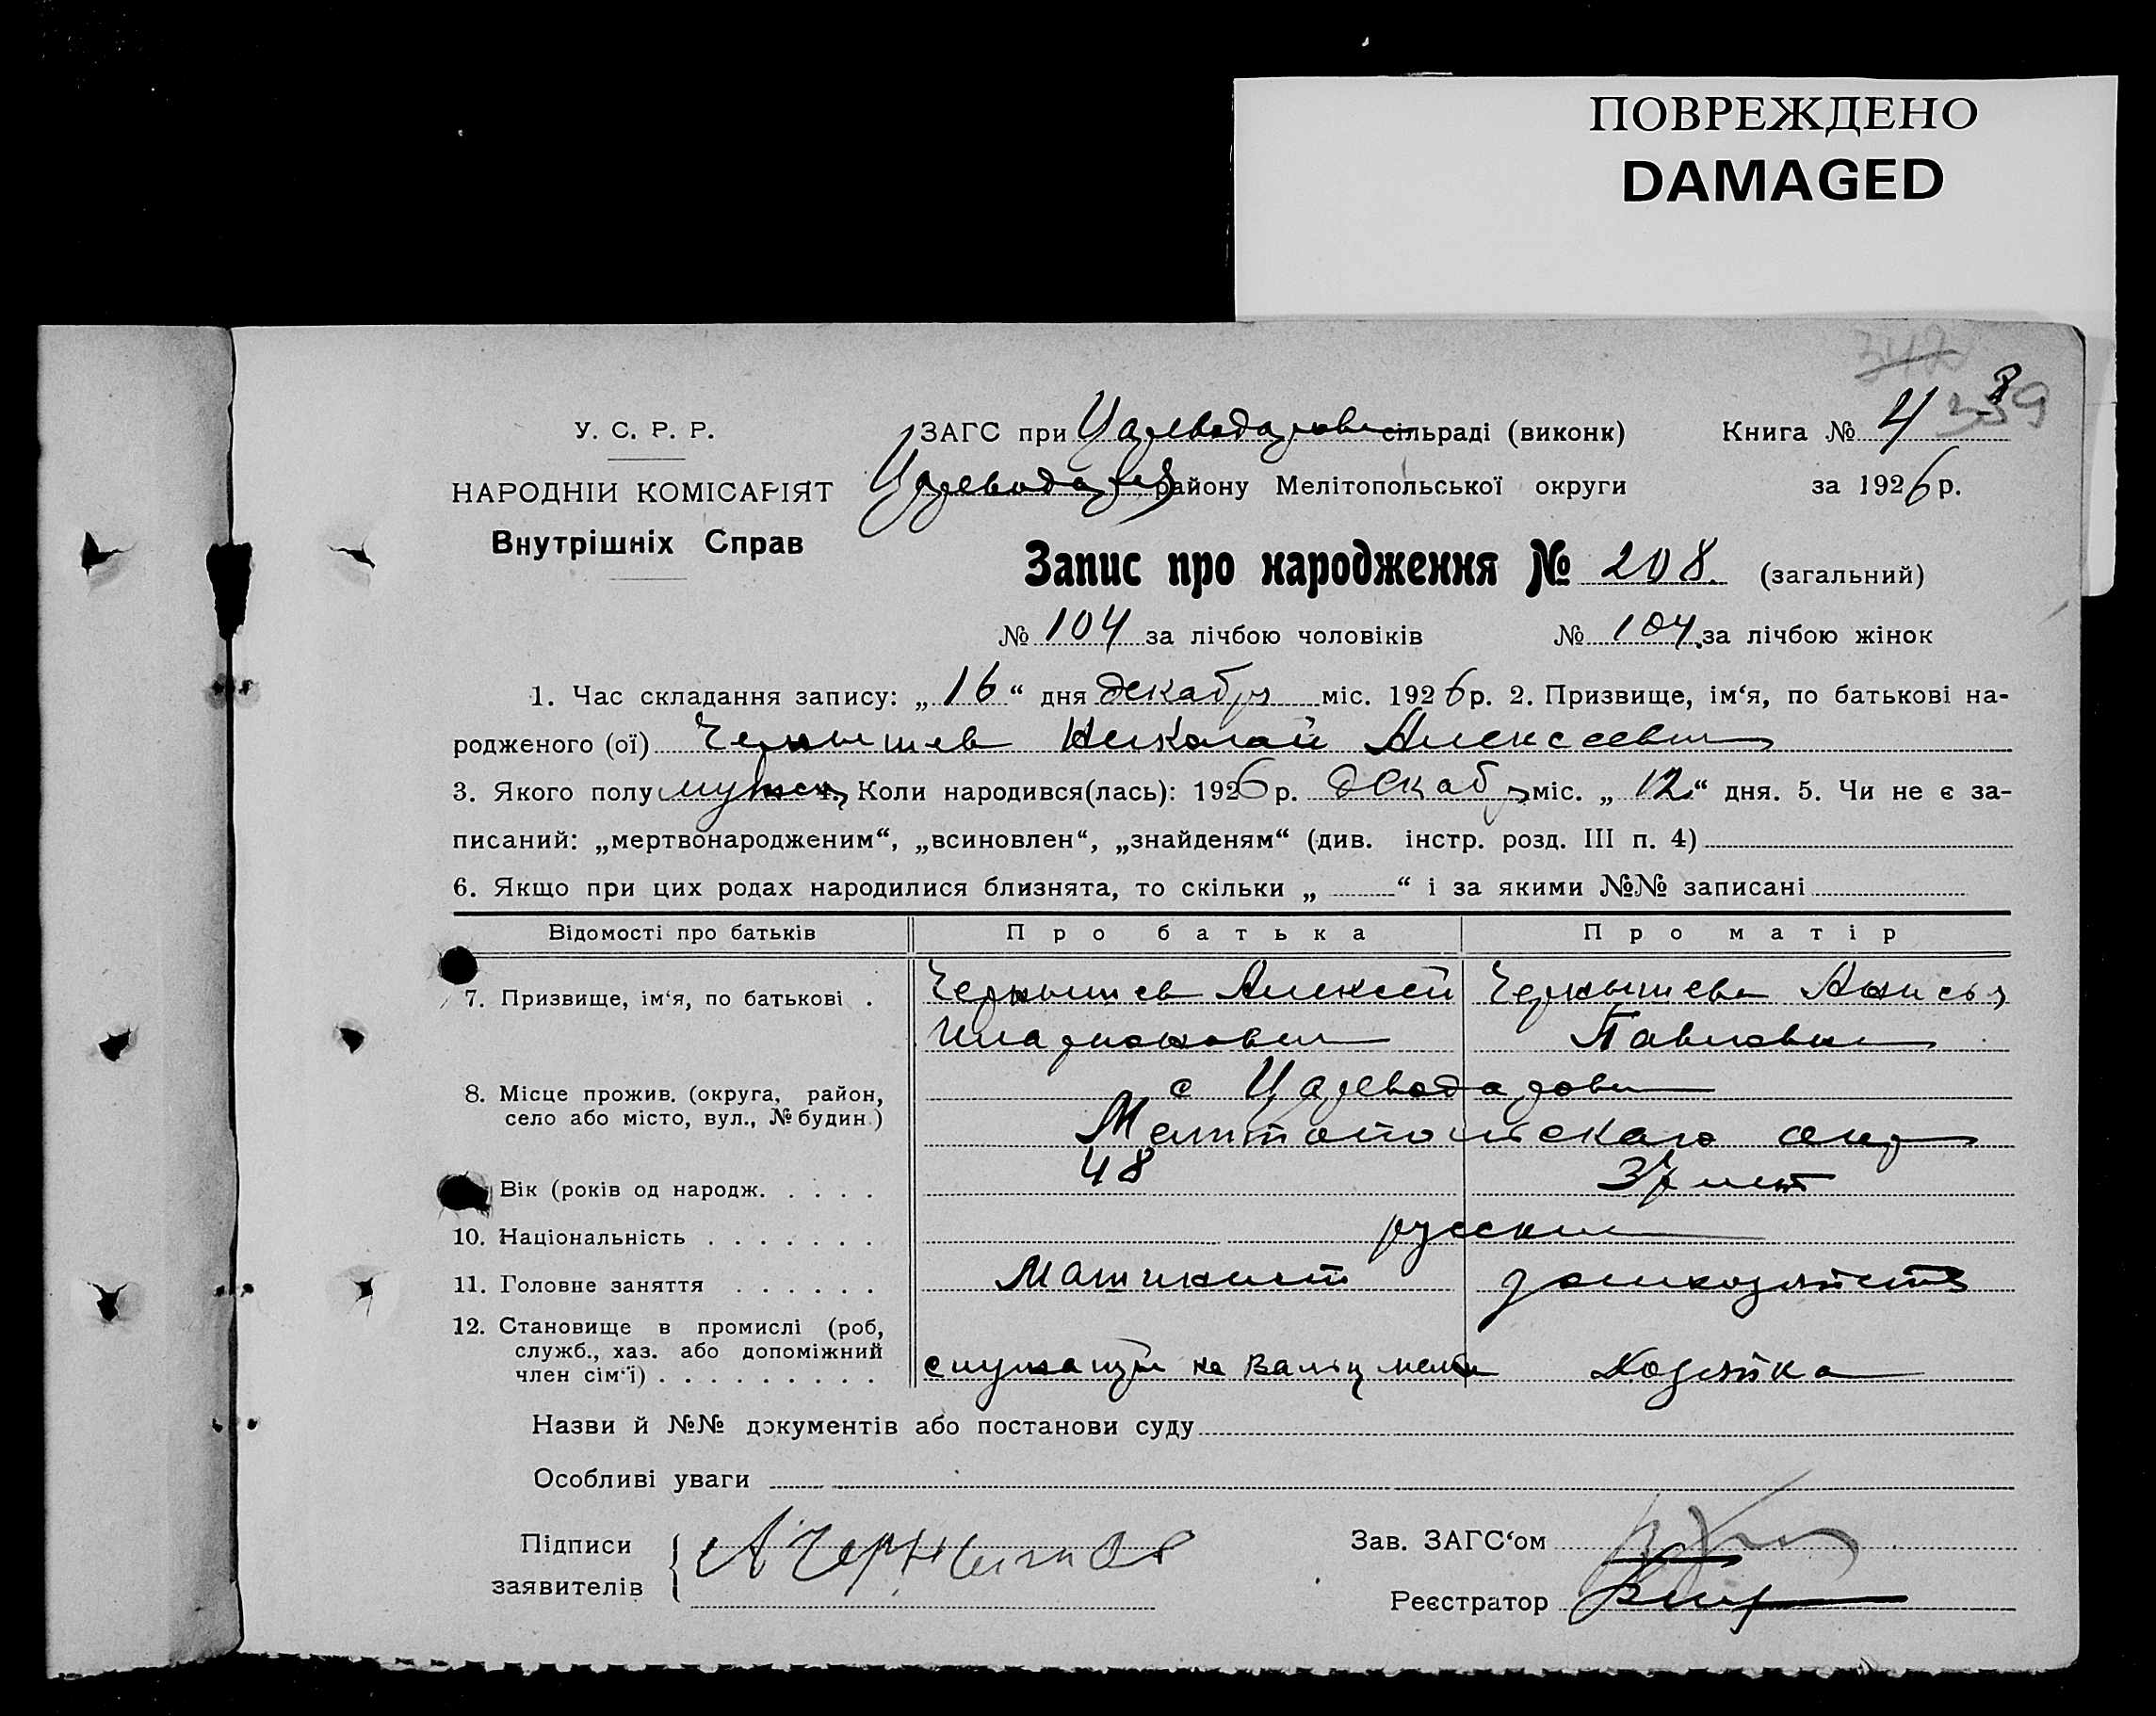 ПОВРЕЖДЕНО
DAMAGED
У. С. Р. Р.
НАРОДНІЙ КОМІСАРІЯТ
Внутрішніх Справ
ЗАГС при сільраді (виконк)
району Мелітопольської округи
Книга № 4
за 1926 р.
Запис про народження № 208 (загальний)
№ 104 за лічбою чоловіків № 104 за лічбою жінок
1. Час складання запису: „16“ дня декабря міс. 1926 р. 2. Призвище, ім‘я, по батькові на-
родженого (ої) Чернышев Николай Алексеевич
3. Якого полу мужск 4. Коли народився(лась): 1926 р. декабр міс. „12“ дня. 5. Чи не є за-
писаний: „мертвонародженим“, „всиновлен“, „знайденям“ (див. інстр. розд. III п. 4)
6. Якщо при цих родах народилися близнята, то скільки „ “ і за якими №№ записані
Відомості про батьків Про батька Про матір
7. Призвище, ім‘я, по батькові . Чернышев Алексей Чернышева Анисья
Илларионович Павловна
8. Місце прожив. (округа, район,
село або місто, вул., № будин.)
с Цареводаровка
Мелитопольского окр
Вік (років од народж. . . . . 48 37 лет
10. Національність . . . . . . . русские
11. Головне заняття . . . . . . Машинист домхозяйство
12. Становище в промислі (роб,
служб., хаз. або допоміжний
член сім‘ї) . . . . . . . . . служащий на вальц мельн Хозяйка
Назви й №№ документів або постанови суду
Особливі уваги
Підписи
заявителів
А Чернышов
Зав. ЗАГС‘ом
Реєстратор